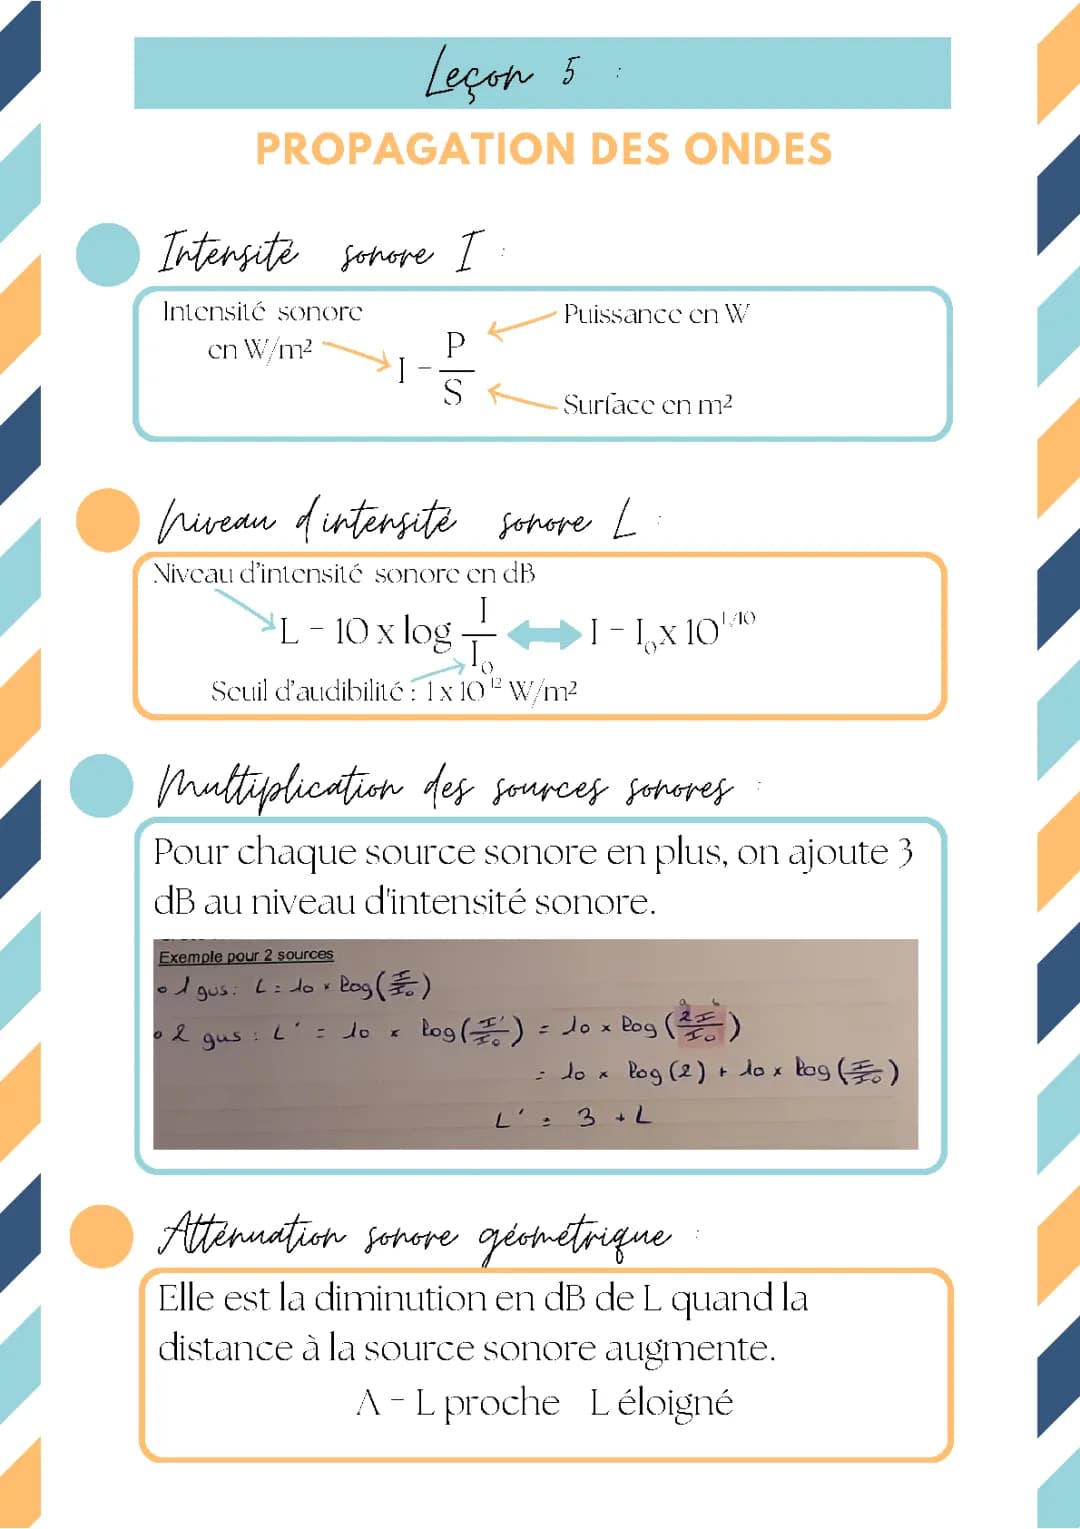 Leçon 5 :
PROPAGATION DES ONDES
Intensité sonore I :
Intensité sonore
en W/m²
I = P/S
Puissance en W
Surface en m²
Niveau d'intensité sonore L :
Niveau d'intensité sonore en dB
L = 10 x log I/I₀ ⟷ I = I₀ x 10^L/10
Seuil d'audibilité : 1 x 10¹² W/m²
Multiplication des sources sonores :
Pour chaque source sonore en plus, on ajoute 3
dB au niveau d'intensité sonore.
Exemple pour 2 sources
• 1 gus : L = 10 x log(I/I₀)
• 2 gus : L' = 10 x log(I'/I₀) = 10 x log(2I/I₀)
a b
= 10 x log(2) + 10 x log(I/I₀)
L' = 3 + L
Atténuation sonore géométrique :
Elle est la diminution en dB de L quand la
distance à la source sonore augmente.
A = L proche L éloigné